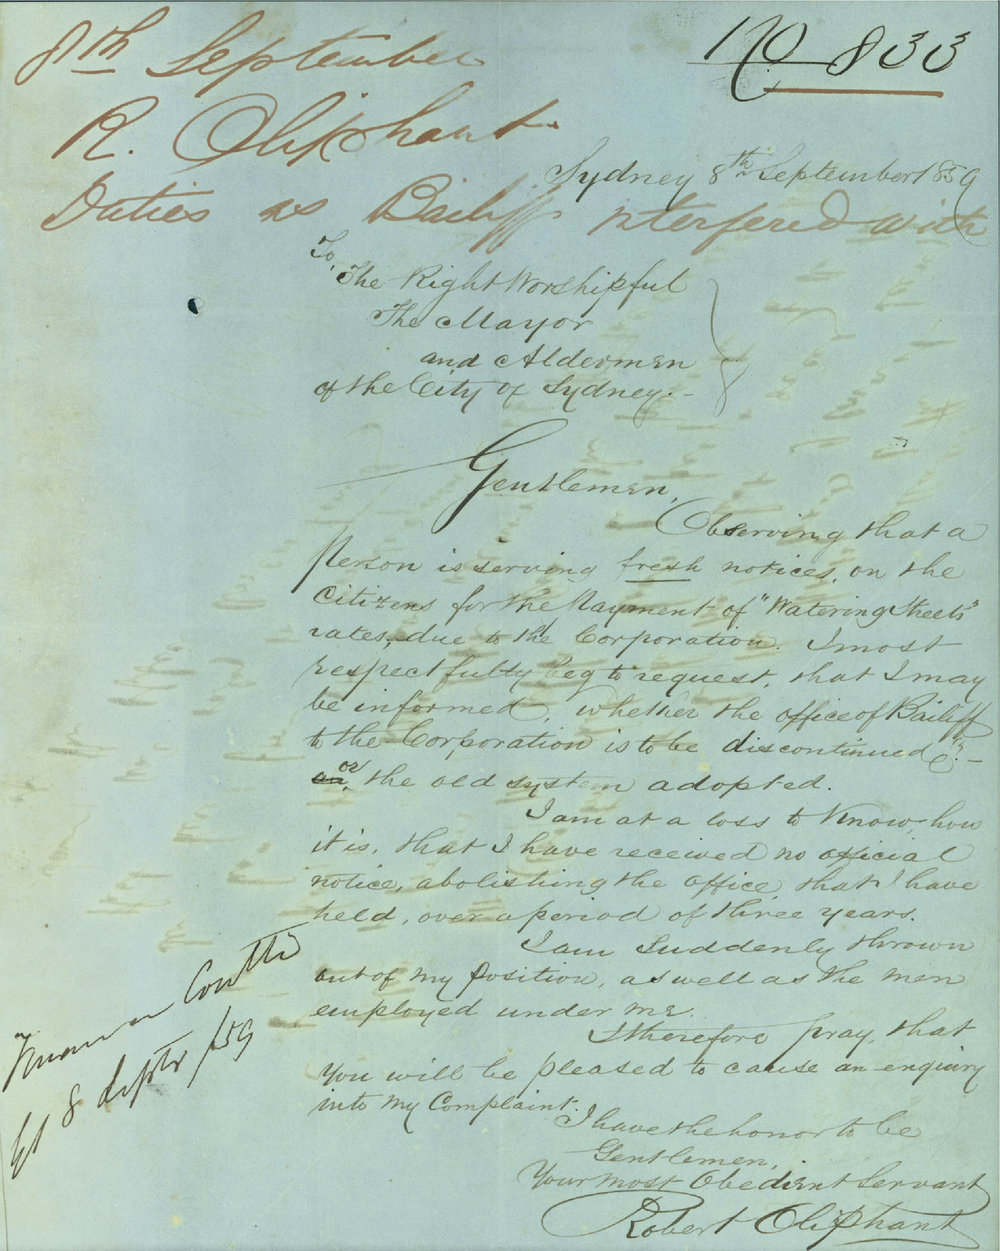 No 833
8th September
R. Oliphant
Duties as Bailiff interfered with
Sydney 8th September 1859
To,
The Right Worshipful
The Mayor
and Aldermen
of the City of Sydney.-
Gentlemen,
Observing that a
person is serving fresh notices, on the
Citizens for the Payment of "Watering Streets"
rates, due to the Corporation. I most
respectfully beg to request, that I may
be informed, whether the office of Bailiff
to the Corporation is to be discontinued?-
or, the old system adopted.
I am at a loss to know, how
it is, that I have received no official
notice, abolishing the office, that I have
held, over a period of three years.
I am Suddenly thrown
out of my position, as well as the men
employed under me.
I therefore pray, that
You will be pleased to cause an enquiry
into my Complaint.
I have the honor to be
Gentlemen,
Your most Obedient Servant
Robert Oliphant
Finance Comttee
8 Septr /59